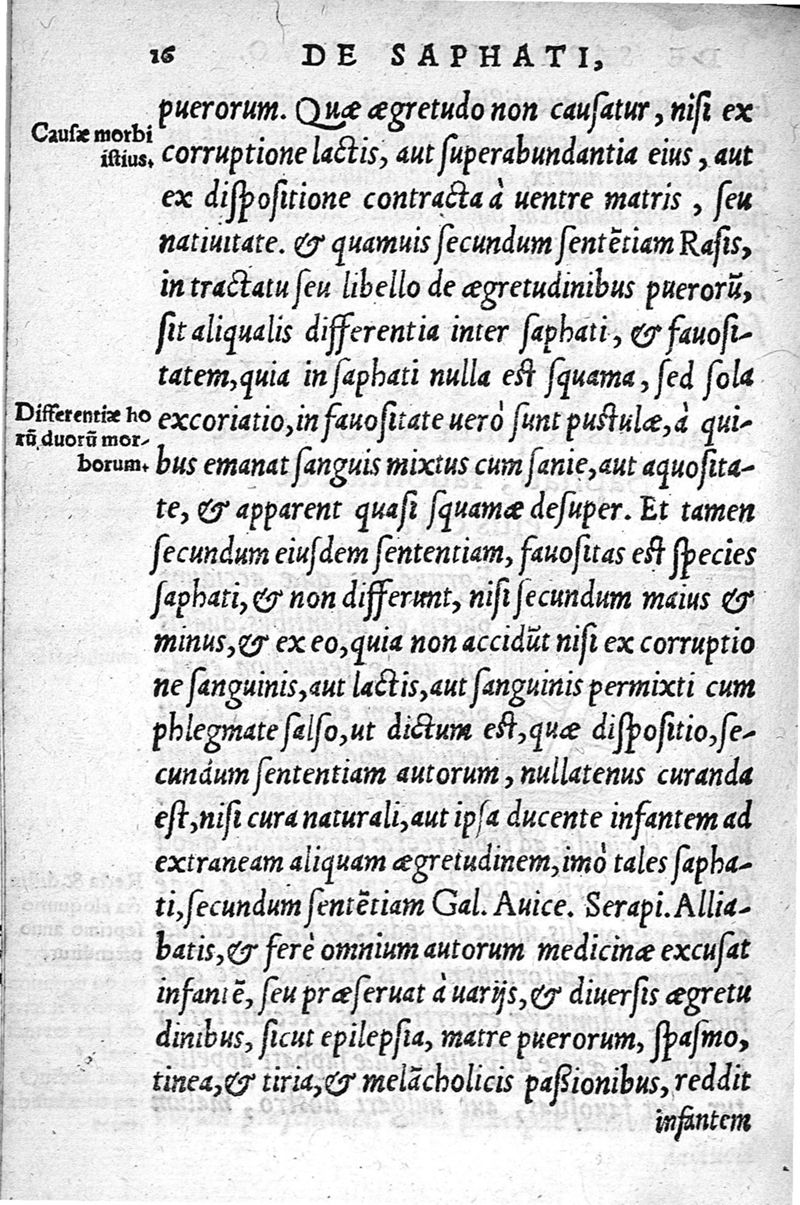 16
DE SAPHATI,
puerorum. Quæ ægretudo non causatur, nisi ex
Causæ morbi
istius.
corruptione lactis, aut superabundantia eius, aut
ex dispositione contracta à uentre matris, seu
natiuitate. & quamuis secundum sentẽtiam Rasis,
in tractatu seu libello de ægretudinibus puerorũ,
sit aliqualis differentia inter saphati, & fauosi-
tatem, quia in saphati nulla est squama, sed sola
Differentiæ ho
rũ duorũ mor-
borum.
excoriatio, in fauositate uerò sunt pustulæ, à qui-
bus emanat sanguis mixtus cum sanie, aut aquosita-
te, & apparent quasi squamæ desuper. Et tamen
secundum eiusdem sententiam, fauositas est species
saphati, & non differunt, nisi secundum maius &
minus, & ex eo, quia non accidũt nisi ex corruptio
ne sanguinis, aut lactis, aut sanguinis permixti cum
phlegmate salso, ut dictum est, quæ dispositio, se-
cundum sententiam autorum, nullatenus curanda
est, nisi cura naturali, aut ipsa ducente infantem ad
extraneam aliquam ægretudinem, imò tales sapha-
ti, secundum sentẽtiam Gal. Auice. Serapi. Allia-
batis, & ferè omnium autorum medicinæ excusat
infantẽ, seu præseruat à uarijs, & diuersis ægretu
dinibus, sicut epilepsia, matre puerorum, spasmo,
tinea, & tiria, & melãcholicis passionibus, reddit
infantem